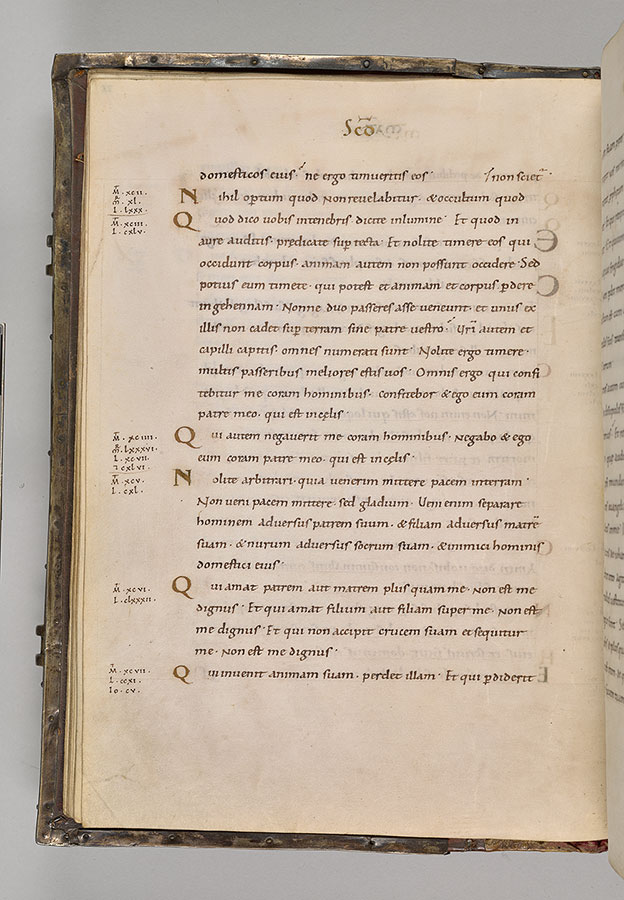 Scđo
domesticos eius; ne ergo timueritis eos · non sciet
M. xcii.
M. xl.
L. lxxx.
N ihil optum quod Non revelabitur · & occultum quod
M. xciii.
L. cxlv.
Q uod dico uobis intenebris dicite inlumine · Et quod in
aure auditis · predicate sup tecta · Et nolite timere eos qui
occidunt corpus · animam autem non possunt occidere · Sed
potius eum timete · qui potest et animam et corpus pdere
ingehennam · Nonne duo passeres asse veneunt · et unus ex
illis non cadet sup terram sine patre vestro; Uri autem et
capilli capitis · omnes numerati sunt · Nolite ergo timere ·
multis passeribus meliores estis uos · Omnis ergo qui confi
tebitur me coram hominibus · confitebor & ego eum coram
patre meo · qui est incelis ·
M. xciiii.
M. lxxxvi.
L. xcvii.
cxlvi.
Q ui autem negaverit me coram hominibus · Negabo & ego
eum coram patre meo · qui est incelis ·
M. xcv.
L. cxl.
N olite arbitrari · quia venerim mittere pacem interram ·
Non veni pacem mittere · sed gladium · Veni enim separare
hominem adversus patrem suum · & filiam adversus matrē
suam · & nurum adversus socrum suam · & inimici hominis
domestici eius ·
M. xcvi.
L. clxxxii.
Q ui amat patrem aut matrem plus quam me · Non est me
dignus · Et qui amat filium aut filiam super me · Non est
me dignus · Et qui non accipit crucem suam et sequitur
me · Non est me dignus ·
M. xcvii.
L. ccxi.
Io. cv.
Q ui invenit animam suam · perdet illam · Et qui pdiderit